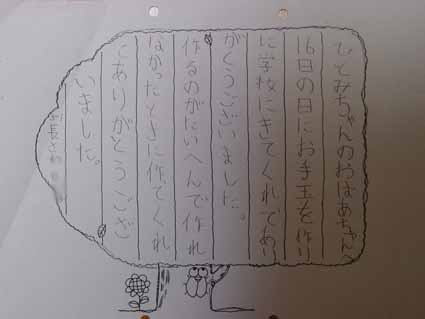 ひとみちゃんのおばあちゃんへ
16日の日にお手玉を作り
に学校にきてくれてあり
がとうございました。
作るのがたいへんで作れ
なかったときに作てくれ
てありがとうござ
いました。